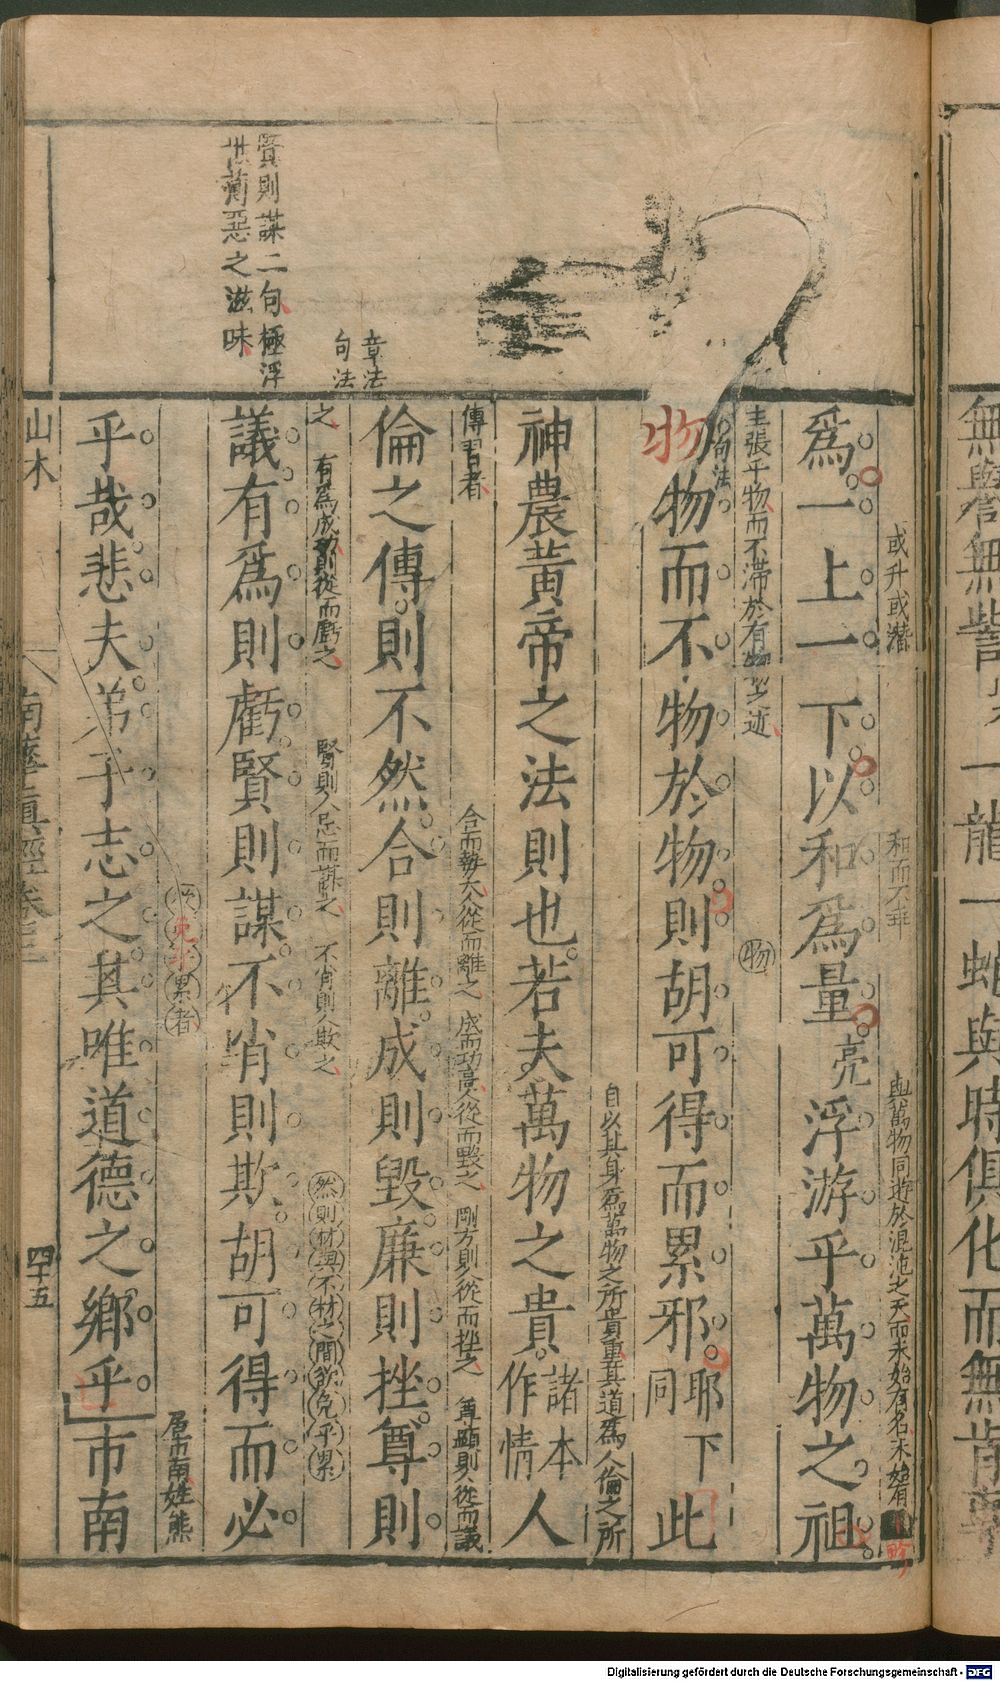 無譽無訾
一龍一蛇與時俱化而無肯專
或升或潛
和而不乖
與萬物同遊於混沌之天而未始有名未始有
為一上一下以和為量亮浮游乎萬物之祖
主張乎物而不滯於有物之迹
句法
物
物物而不物於物則胡可得而累邪耶同下此
自以其身為萬物之所貴重其道為人倫之所
神農黃帝之法則也若夫萬物之貴諸本作情人
傳習者
合而勢大人從而離之
成而功高人從而毀之
剛方則人從而挫之
尊顯則人從而議
章法
句法
倫之傳則不然合則離成則毀廉則挫尊則
之
有為成功則人從而虧之
賢則人忌而謀之
不肖則人欺之
然則材與不材之間欲免乎累
賢則謀二句極浮
世薄惡之滋味
議有為則虧賢則謀不肖則欺胡可得而必
免乎累者
居市南姓熊
乎哉悲夫弟子志之其唯道德之鄉乎市南
山木
南華真經卷三
四十五
Digitalisierung gefördert durch die Deutsche Forschungsgemeinschaft - DFG